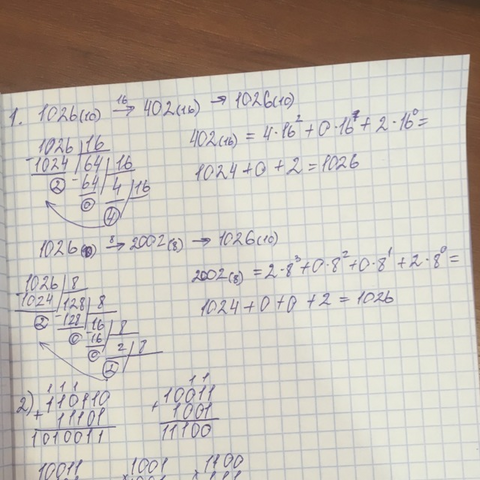 1. 1026(10) 16→ 402(16) → 1026(10)
1026 | 16
-1024 | 64 | 16
2 -64 | 4 | 16
0 4
402(16) = 4·16² + 0·16¹ + 2·16⁰ =
1024 + 0 + 2 = 1026
1026(10) 8→ 2002(8) → 1026(10)
1026 | 8
-1024 | 128 | 8
2 -128 | 16 | 8
0 -16 | 2 | 8
0 2
2002(8) = 2·8³ + 0·8² + 0·8¹ + 2·8⁰ =
1024 + 0 + 0 + 2 = 1026
2) 1 1 1
110110
+ 11101
1010011
1 1
+ 10011
1001
11100
10011 1001 1100